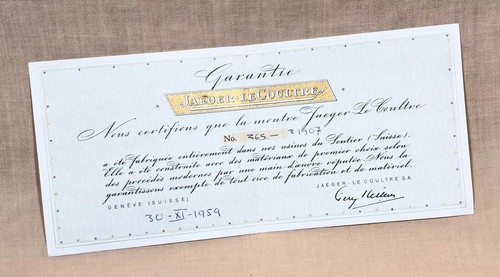 Garantie
JAEGER-LECOULTRE
Nous certifions que la montre Jaeger LeCoultre
No. 365.— 31907
a été fabriquée entièrement dans nos usines du Sentier (Suisse).
Elle a été construite avec des matériaux de premier choix selon
des procédés modernes par une main d'œuvre réputée. Nous la
garantissons exempte de tout vice de fabrication et de matériel.
GENÈVE (SUISSE)
JAEGER-LECOULTRE S.A.
30-XI-1959